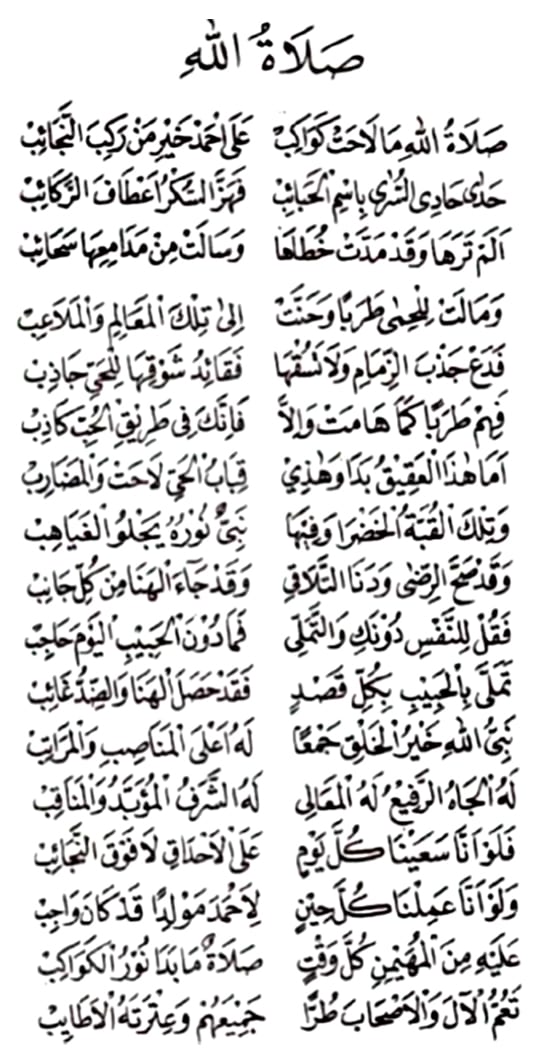 صَلَاةُ اللهِ
صَلَاةُ اللهِ مَا لَاحَتْ كَوَاكِبْ عَلَى اَحْمَدْ خَيْرِ مَنْ رَكِبَ النَّجَائِبْ
حَدٰى حَادِى السُّرٰى بِاسْمِ الْحَبَائِبْ فَهَزَّ السُّكْرُ اَعْطَافَ الرَّكَائِبْ
اَلَمْ تَرَهَا وَقَدْ مَدَّتْ خُطَاهَا وَسَالَتْ مِنْ مَدَامِعِهَا سَحَائِبْ
وَمَالَتْ لِلْحِمٰى طَرَبًا وَحَنَّتْ اِلىٰ تِلْكَ الْمَعَالِمِ وَالْمَلَاعِبْ
فَدَعْ جَذْبَ الزِّمَامِ وَلَا تَسُقْهَا فَقَائِدُ شَوْقِهَا لِلْحَيِّ جَاذِبْ
فَهِمْ طَرَبًا كَمَا هَامَتْ وَاِلَّا فَاِنَّكَ فِى طَرِيْقِ الْحُبِّ كَاذِبْ
اَمَا هٰذَا الْعَقِيْقُ بَدَا وَهٰذِيْ قِبَابُ الْحَيِّ لَاحَتْ وَالْمَضَارِبْ
وَتِلْكَ الْقُبَّةُ الْخَضْرَا وَفِيْهَا نَبِيٌّ نُوْرُهُ يَجْلُو الْغَيَاهِبْ
وَقَدْ صَحَّ الرِّضٰى وَدَنَا التَّلَاقِي وَقَدْ جَاءَ الْهَنَا مِنْ كُلِّ جَانِبْ
فَقُلْ لِلنَّفْسِ دُوْنَكِ وَالتَّمَلِّي فَمَا دُوْنَ الْحَبِيْبِ الْيَوْمَ حَاجِبْ
تَمَلَّى بِالْحَبِيْبِ بِكُلِّ قَصْدٍ فَقَدْ حَصَلَ الْهَنَا وَالضِّدُّ غَائِبْ
نَبِيُّ اللهِ خَيْرُ الْخَلْقِ جَمْعًا لَهُ اَعْلَى الْمَنَاصِبِ وَالْمَرَاتِبْ
لَهُ الْجَاهُ الرَّفِيْعُ لَهُ الْمَعَالِى لَهُ الشَّرَفُ الْمُؤَبَّدُ وَالْمَنَاقِبْ
فَلَوْ اَنَّا سَعَيْنَا كُلَّ يَوْمٍ عَلَى الْاَحْدَاقِ لَا فَوْقَ النَّجَائِبْ
وَلَوْ اَنَّا عَمِلْنَا كُلَّ حِيْنٍ لِاَحْمَدَ مَوْلِدًا قَدْ كَانَ وَاجِبْ
عَلَيْهِ مِنَ الْمُهَيْمِنِ كُلَّ وَقْتٍ صَلَاةٌ مَا بَدَا نُوْرُ الْكَوَاكِبْ
تَعُمُّ الْآلَ وَالْاَصْحَابَ طُرًّا جَمِيْعَهُمْ وَعِتْرَتَهُ الْاَطَايِبْ